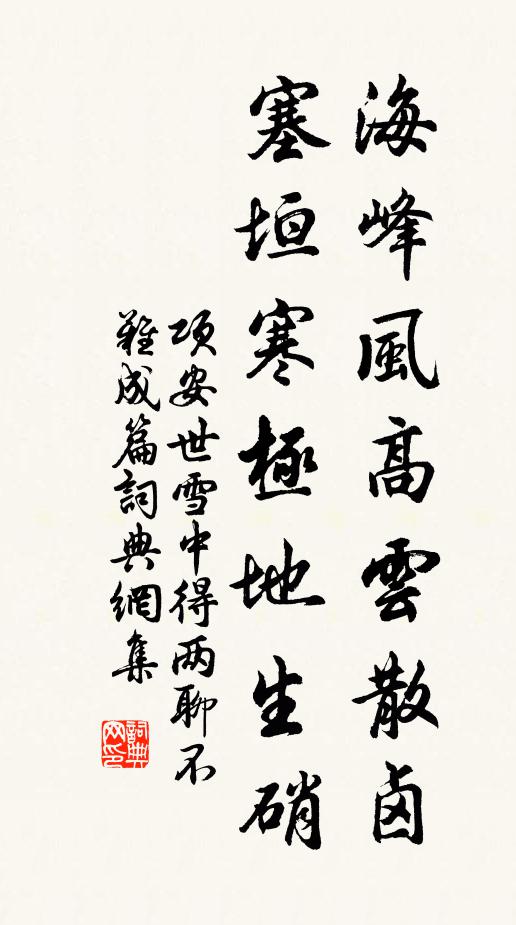 海峰風高雲散鹵
塞垣寒極地生硝
項安世雪中得两聊不
難成篇詞典網集
詞典網印